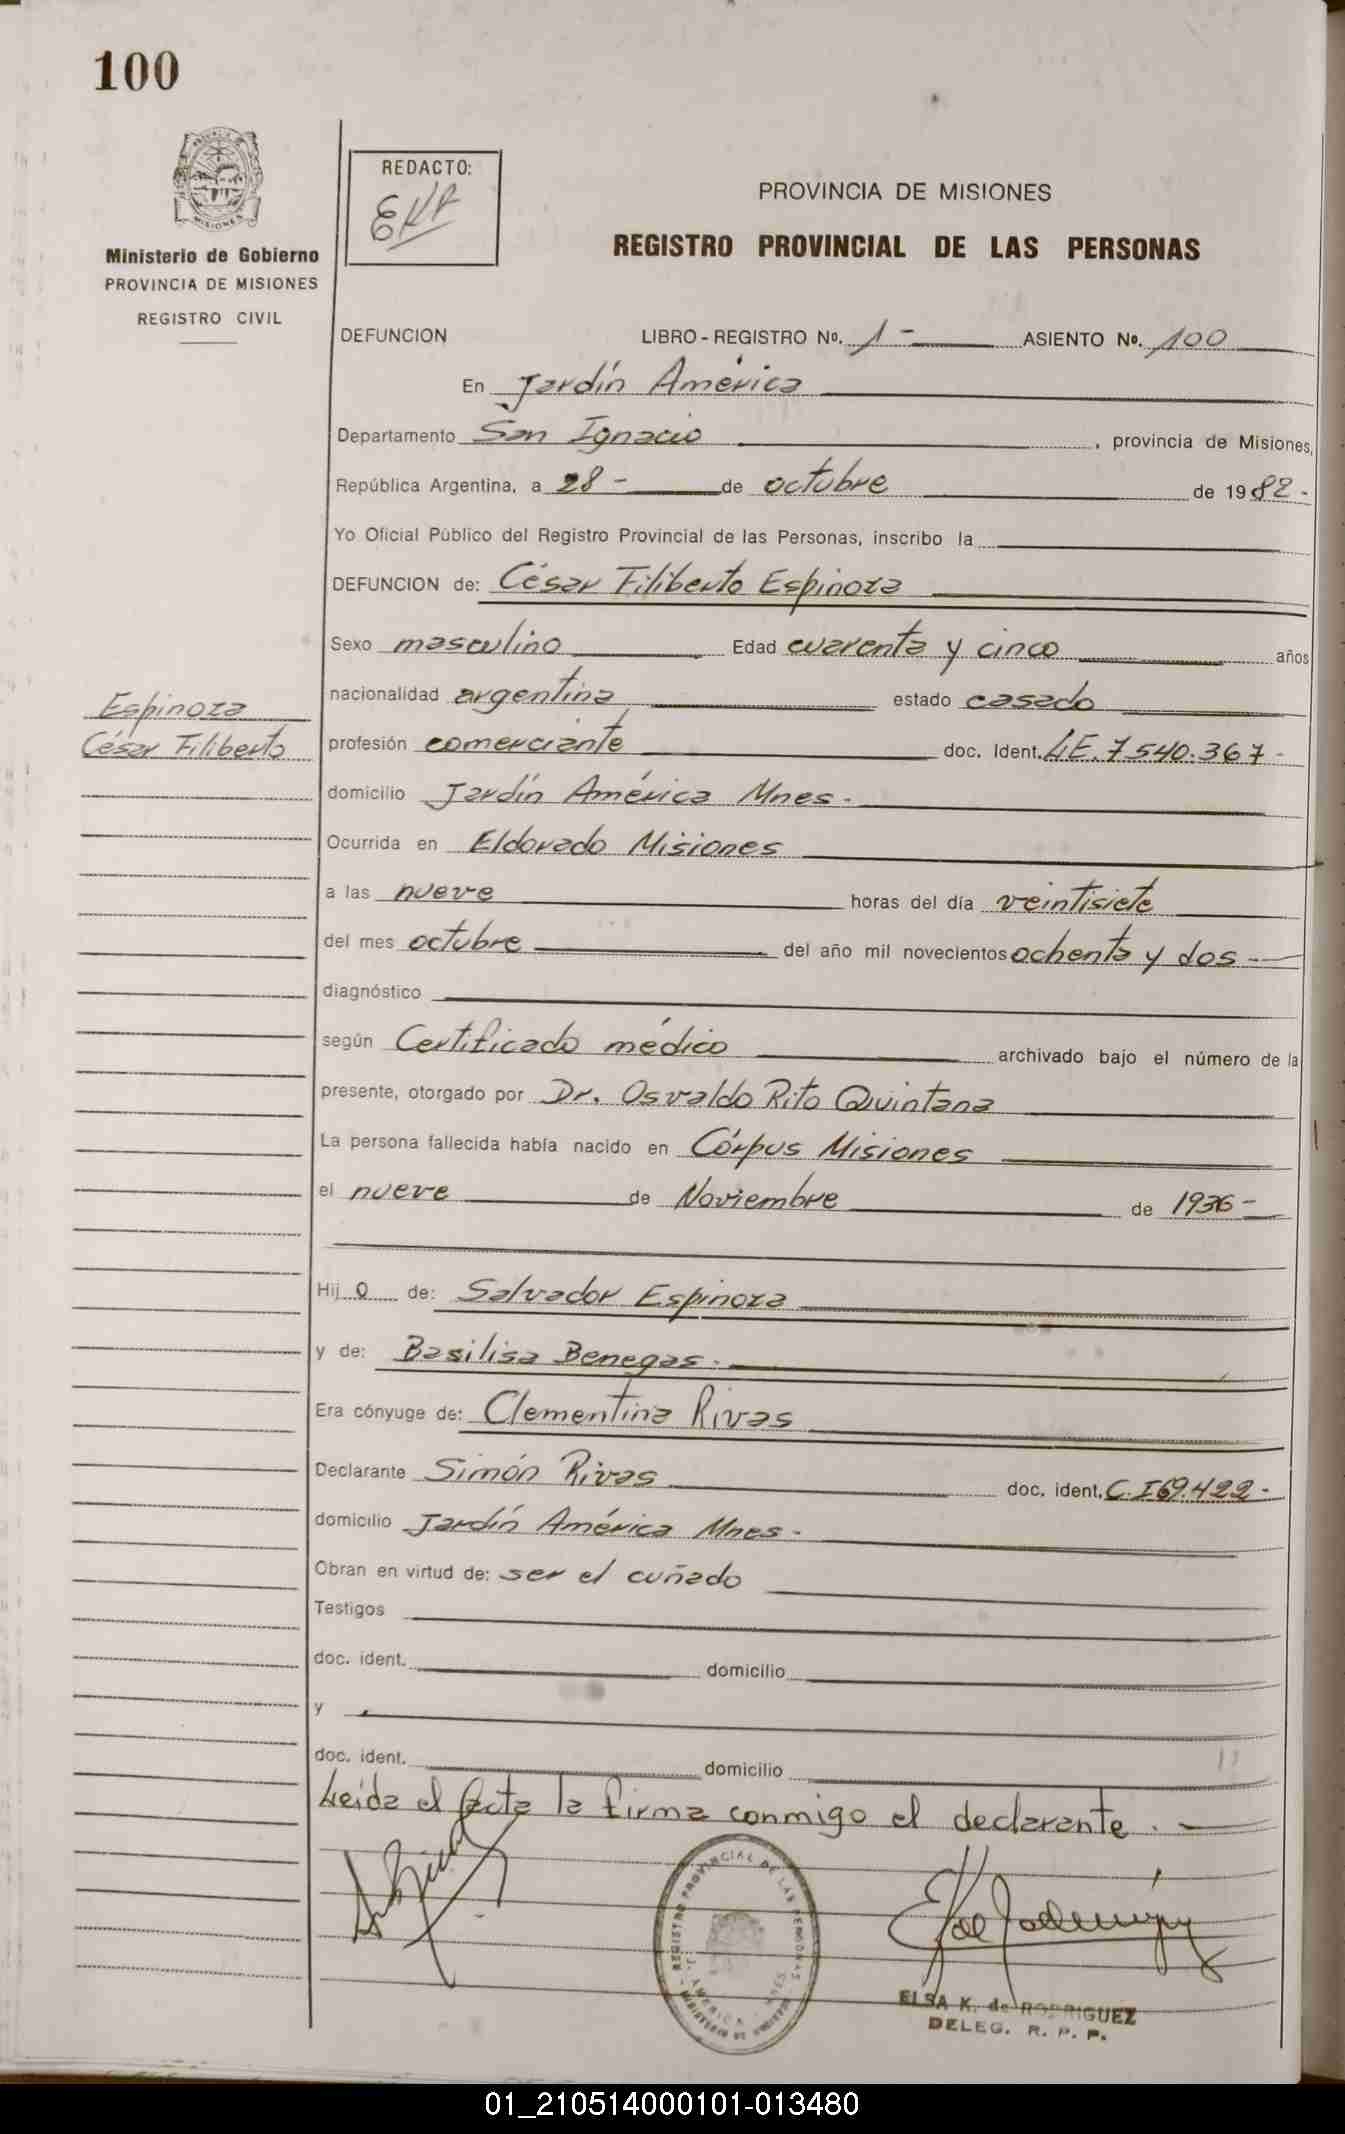 100
REPUBLICA
MISIONES
REDACTO:
Ministerio de Gobierno
PROVINCIA DE MISIONES
REGISTRO CIVIL
PROVINCIA DE MISIONES
REGISTRO PROVINCIAL DE LAS PERSONAS
DEFUNCION LIBRO-REGISTRO No. 1- ASIENTO No. 100
En Jardín América
Departamento San Ignacio, provincia de Misiones,
República Argentina, a 28- de octubre de 1982-
Yo Oficial Público del Registro Provincial de las Personas, inscribo la
DEFUNCION de: César Filiberto Espinoza
Sexo masculino Edad cuarenta y cinco años
Espinoza
César Filiberto
nacionalidad argentina estado casado
profesión comerciante doc. Ident. LE.7540.367-
domicilio Jardín América Mnes-
Ocurrida en Eldorado Misiones
a las nueve horas del día veintisiete
del mes octubre del año mil novecientos ochenta y dos-
diagnóstico
según Certificado médico archivado bajo el número de la
presente, otorgado por Dr. Osvaldo Rito Quintana
La persona fallecida había nacido en Córpus Misiones
el nueve de Noviembre de 1936-
Hij o de: Salvador Espinoza
y de: Basilisa Benegas.
Era cónyuge de: Clementina Rivas
Declarante Simón Rivas doc. ident. C.I69.422-
domicilio Jardín América Mnes-
Obran en virtud de: ser el cuñado
Testigos
doc. ident. domicilio
y
doc. ident. domicilio
Leida el acta la firma conmigo el declarante.-
REGISTRO PROVINCIAL DE LAS PERSONAS
J. AMERICA - MNES
ELSA K. de RODRIGUEZ
DELEG. R. P. P.
01_210514000101-013480